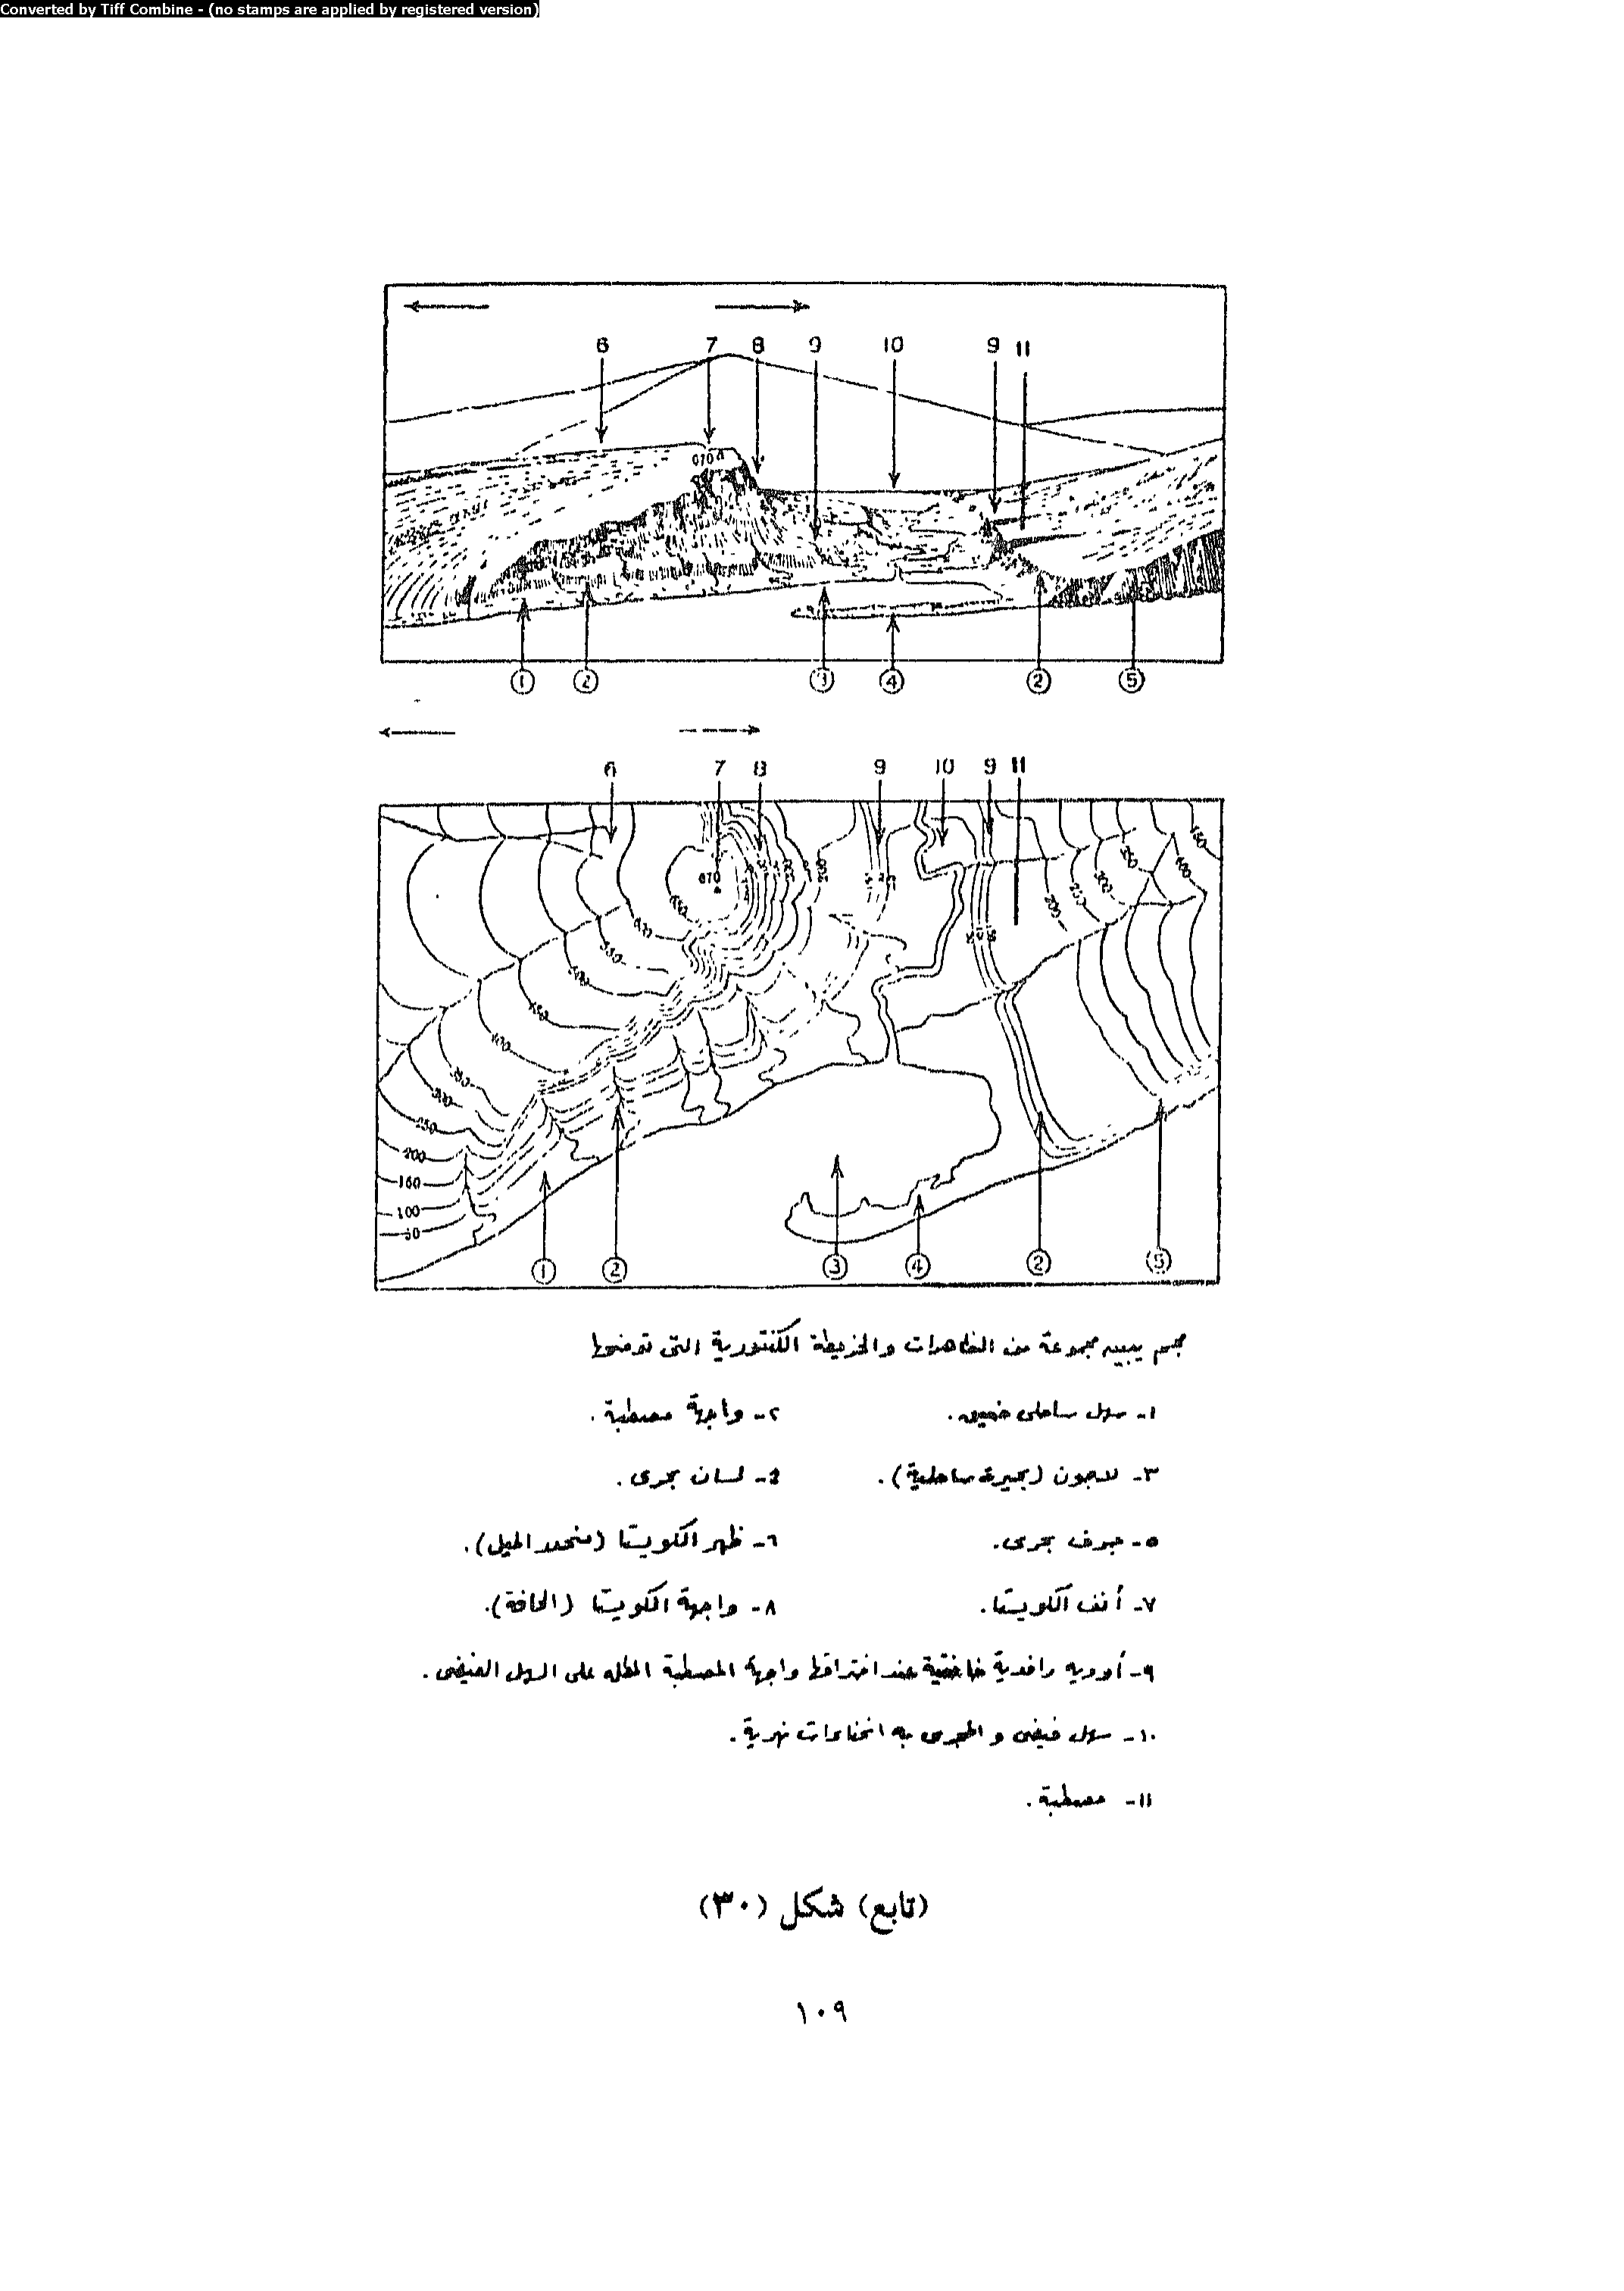 Converted by Tiff Combine - (no stamps are applied by registered version)
6 7 8 9 10 9 11
670
① ② ③ ④ ② ⑤
6 7 8 9 10 9 11
670
200
150
100
50
① ② ③ ④ ② ⑤
مجسم يبين مجموعة من الظاهرات والخريطة الكنتورية التى توضحها
١- سهل ساحلى ضيق. ٢- واجهة مصطبة.
٣- لاجون (بحيرة ساحلية). ٤- لسان بحرى.
٥- جرف بحرى. ٦- ظهر الكويستا (منحدر الميل).
٧- أنف الكويستا. ٨- واجهة الكويستا (الحافة).
٩- أودية رافدية خانقية عند اختراقها واجهة المصطبة المطله على السهل الفيضى.
١٠- سهل فيضى والمجرى به انحناءات نهرية.
١١- مصطبة.
(تابع) شكل (٣٠)
١٠٩